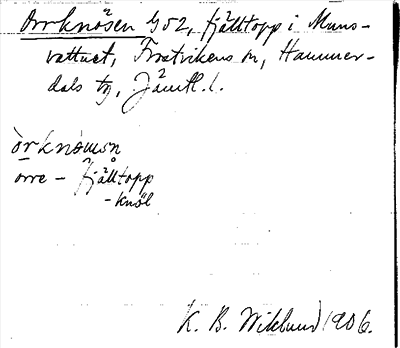 Orrknösen 952, fjälltopp i Muns-
vattnet, Frostvikens sn, Hammer-
dals tg, Jämtl. l.
orre - fjälltopp
- knöl
K. B. Wiklund 1906.